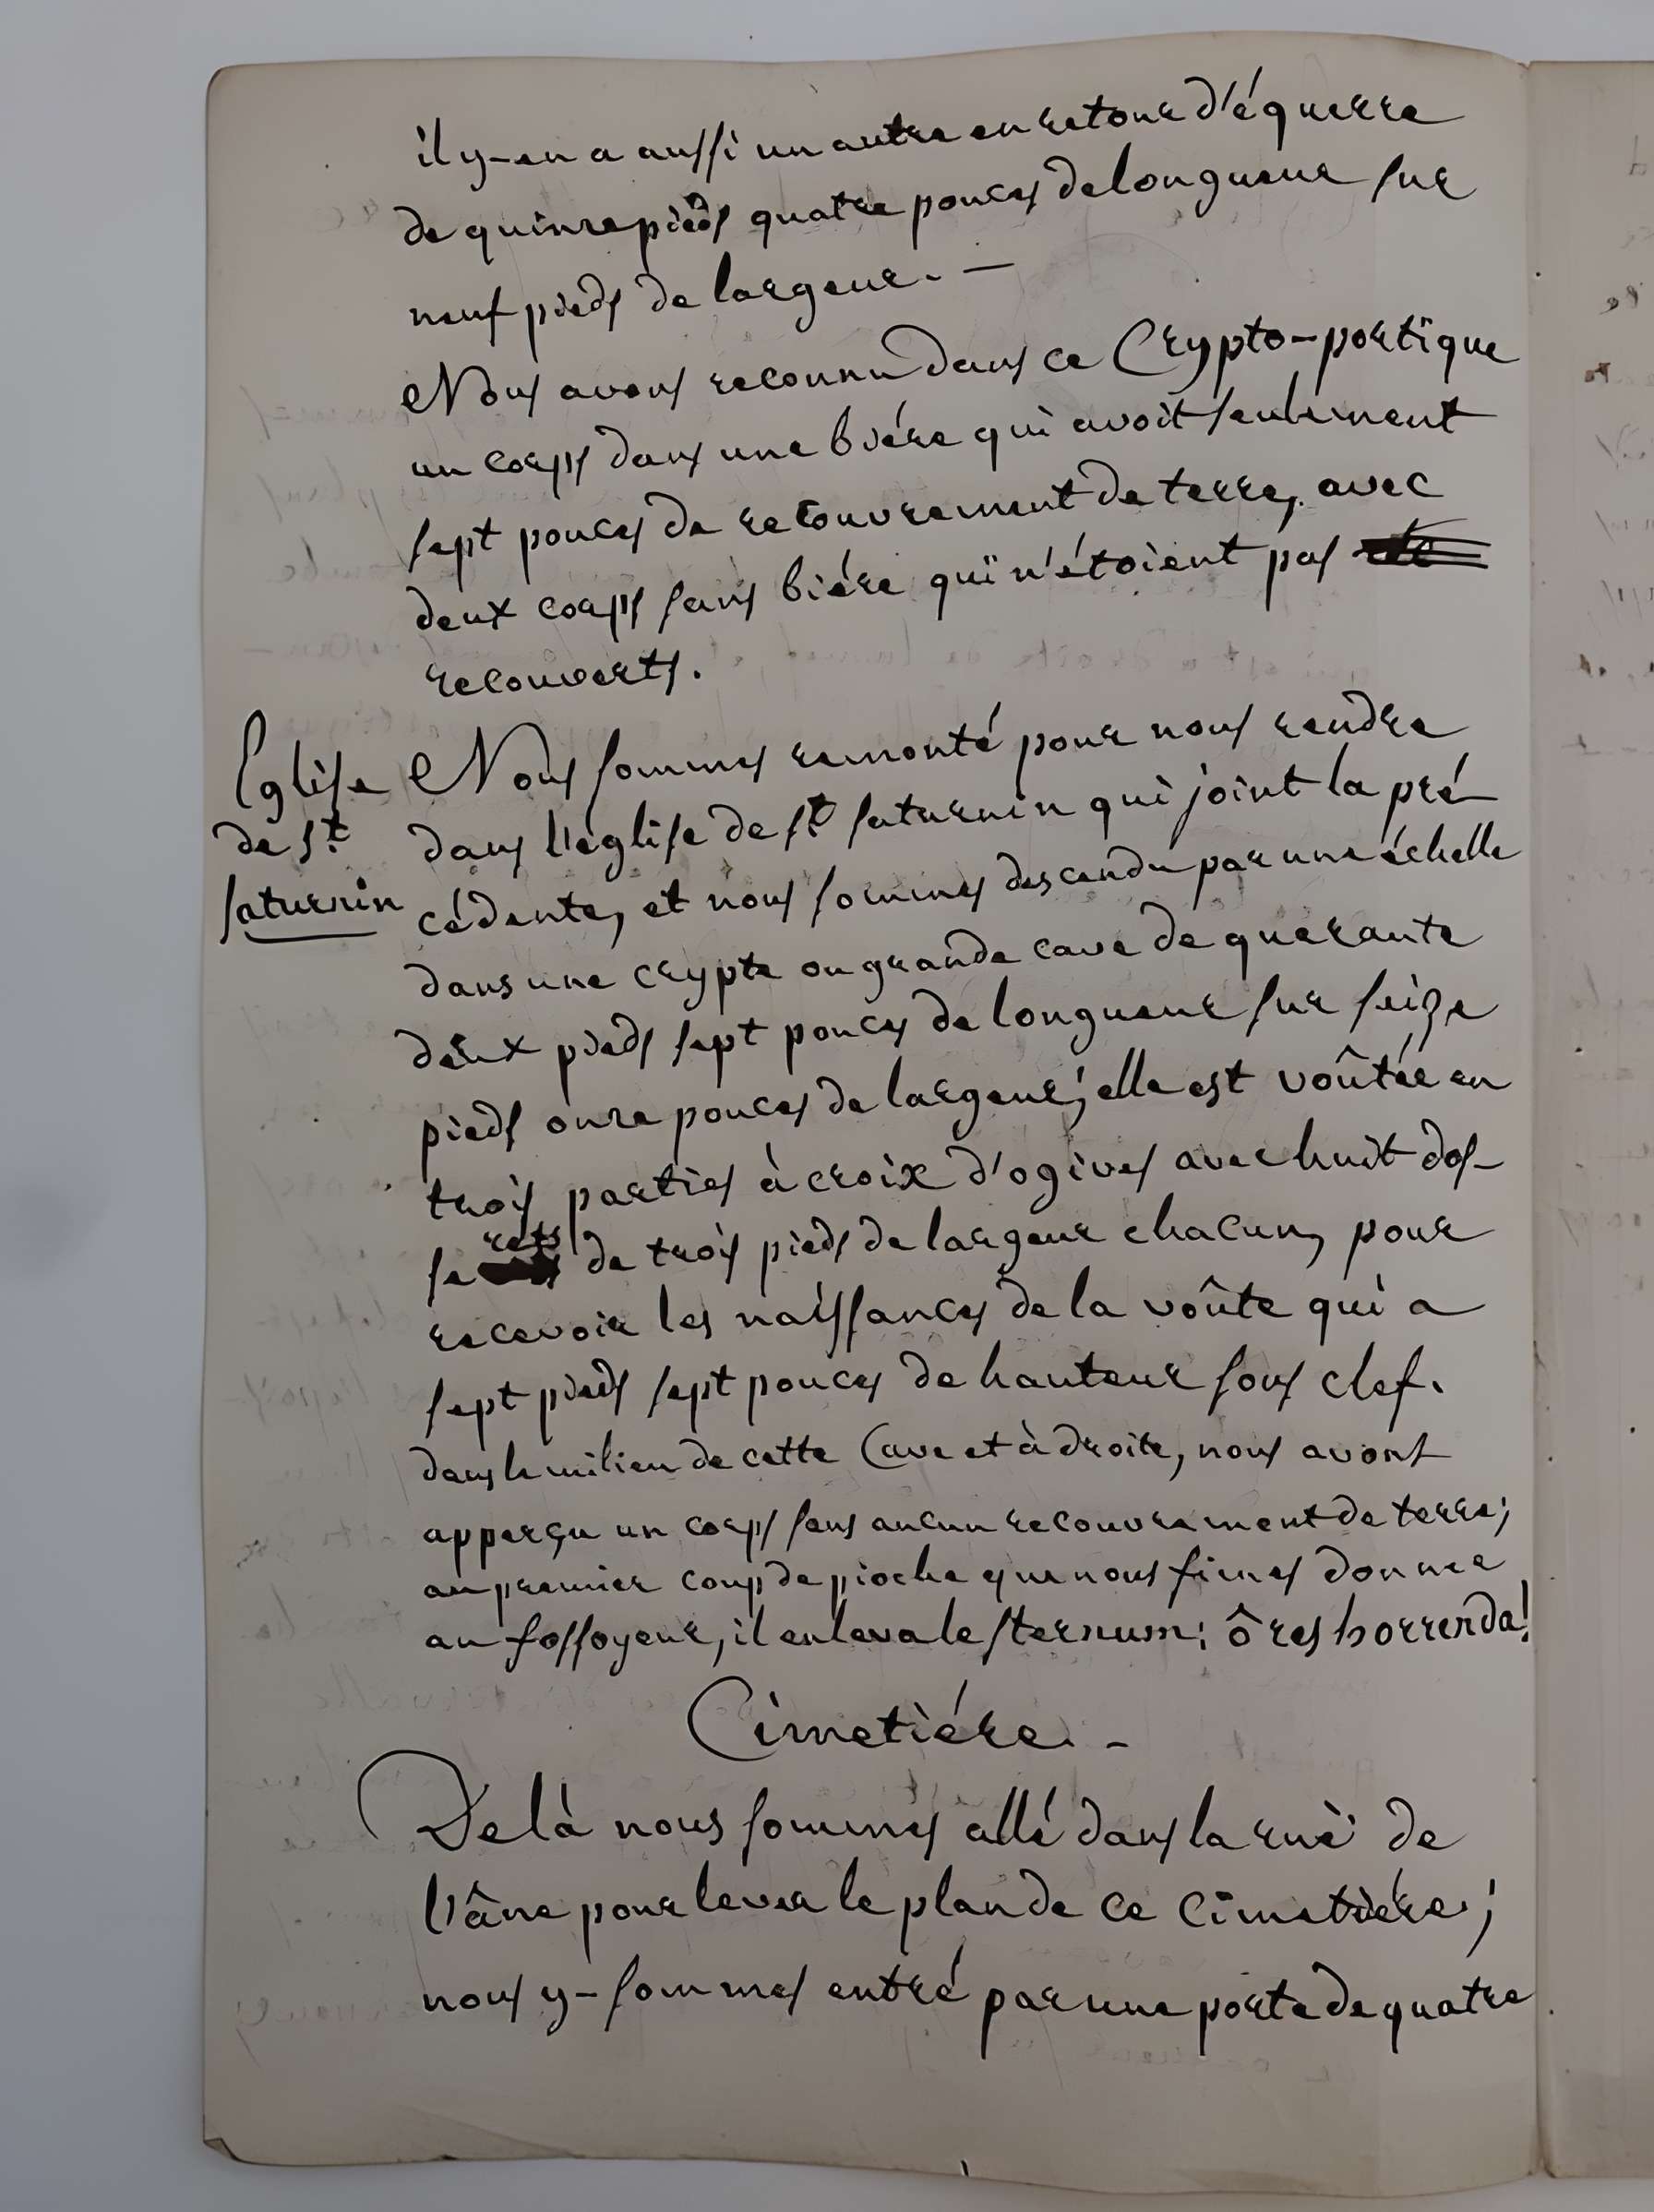 il y-en a aussi un autre en retour d'équerre
de quinze pieds quatre pouces de longueur sur
neuf pieds de largeur. —
Nous avons reconnu dans ce Crypto-portique
un corps dans une biére qui avoit seulement
sept pouces de recouvrement de terre, avec
deux corps sans biére quï n'étoient pas
recouverts.
Eglise
de St.
saturnin
Nous sommes remonté pour nous rendre
dans l'église de st saturnin qui joint la pré-
cédente, et nous sommes descendu par une échelle
dans une crypte ou grande cave de quarante
deux pieds sept pouces de longueur sur seize
pieds onze pouces de largeur; elle est voûtée en
trois parties à croix d'ogives avec huit dos-
serets de trois pieds de largeur chacun, pour
recevoir les naissances de la voûte qui a
sept pieds sept pouces de hauteur sous clef.
dans le milieu de cette Cave et à droite, nous avons
apperçu un corps sans aucun recouvrement de terre;
au premier coup de pioche que nous fimes donner
au fossoyeur, il enleva le sternum; ô res horrenda!
Cimetiére. -
De là nous sommes allé dans la ruë de
l'âne pour lever le plan de ce cimetiére;
nous y-sommes entré par une porte de quatre